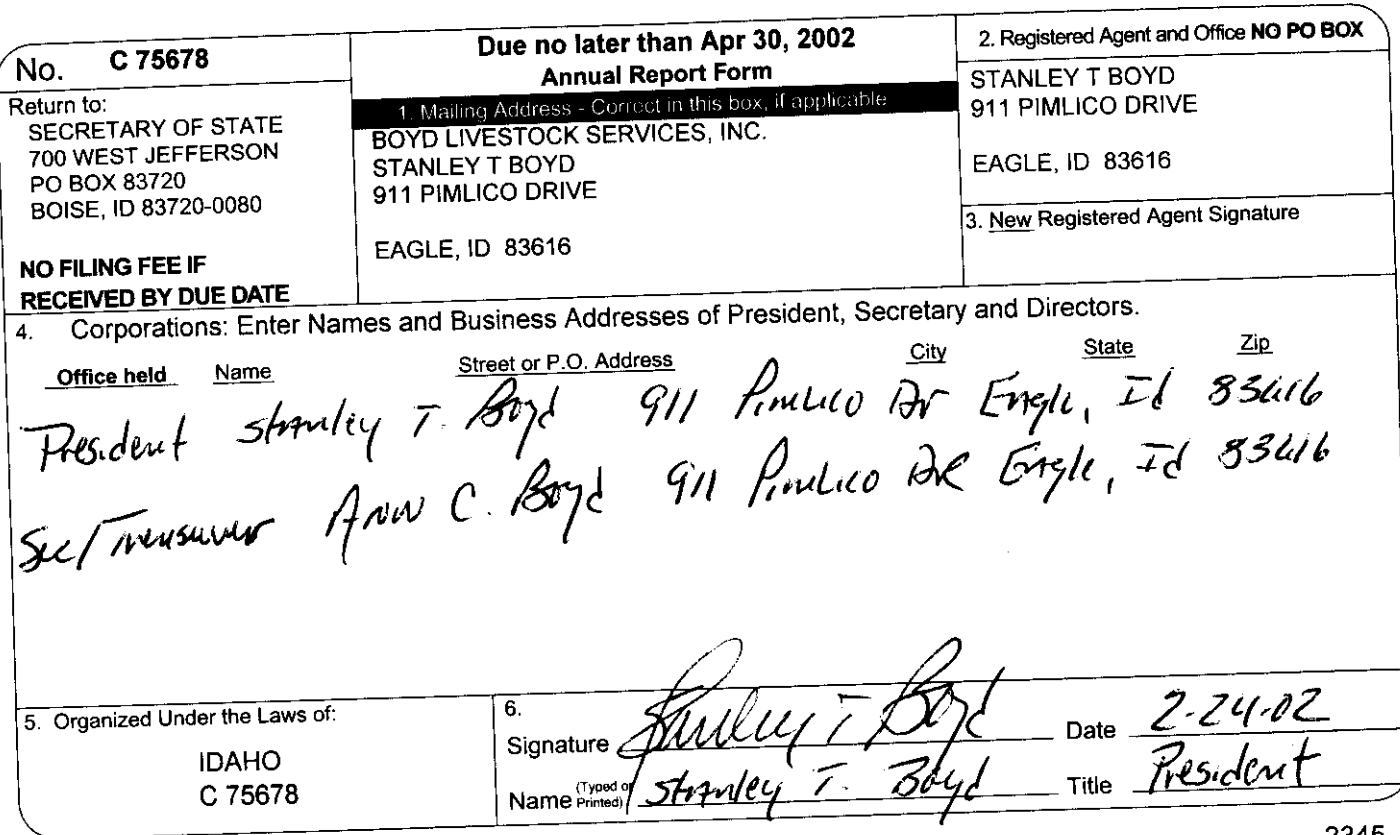 No. C 75678
Return to:
SECRETARY OF STATE
700 WEST JEFFERSON
PO BOX 83720
BOISE, ID 83720-0080
NO FILING FEE IF
RECEIVED BY DUE DATE
Due no later than Apr 30, 2002
Annual Report Form
1. Mailing Address - Correct in this box, if applicable
BOYD LIVESTOCK SERVICES, INC.
STANLEY T BOYD
911 PIMLICO DRIVE
EAGLE, ID 83616
2. Registered Agent and Office NO PO BOX
STANLEY T BOYD
911 PIMLICO DRIVE
EAGLE, ID 83616
3. New Registered Agent Signature
4. Corporations: Enter Names and Business Addresses of President, Secretary and Directors.
Office held Name Street or P.O. Address City State Zip
President Stanley T. Boyd 911 Pimlico Dr Eagle, Id 83616
Sec/Treasurer Ann C. Boyd 911 Pimlico DR Eagle, Id 83616
5. Organized Under the Laws of:
IDAHO
C 75678
6.
Signature Stanley T Boyd Date 2-24-02
Name (Typed or Printed) Stanley T. Boyd Title President
2345